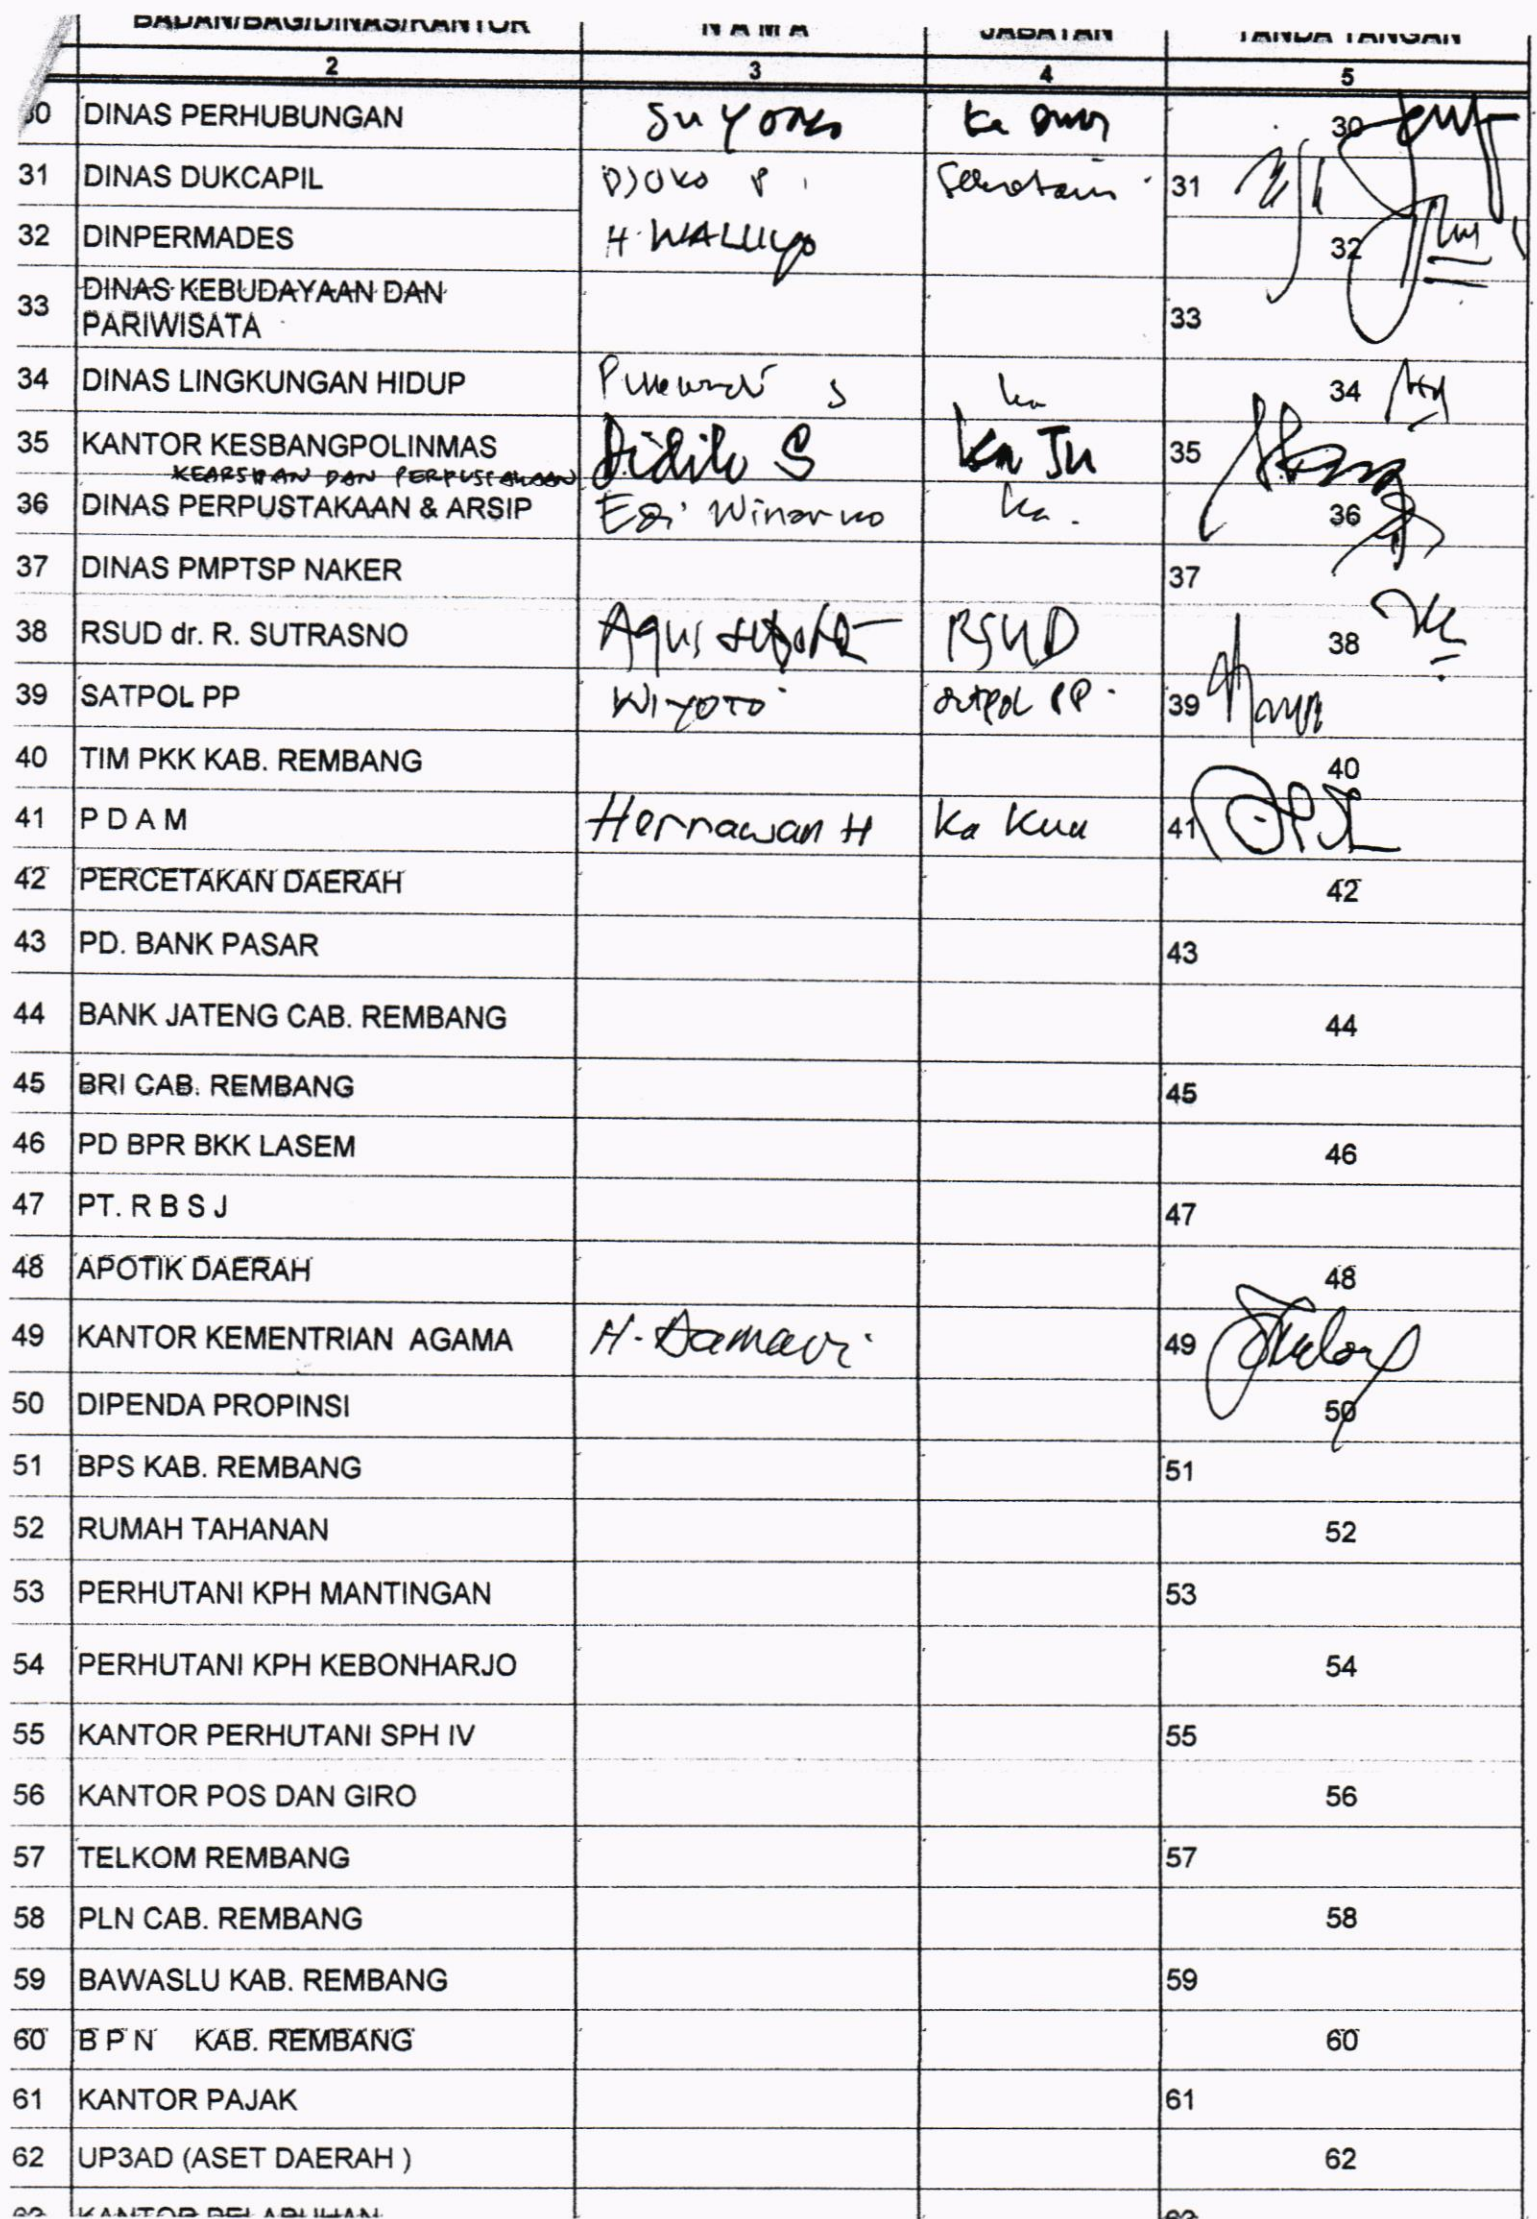 BADAN/BAG/DINAS/KANTOR NAMA JABATAN TANDA TANGAN
2 3 4 5
30 DINAS PERHUBUNGAN Suyono Ka 30
31 DINAS DUKCAPIL DJOKO P. Sekretaris 31
32 DINPERMADES H. WALUYO 32
33 DINAS KEBUDAYAAN DAN
PARIWISATA 33
34 DINAS LINGKUNGAN HIDUP S ka 34
35 KANTOR KESBANGPOLINMAS S 35
KEARSIPAN DAN PERPUSTAKAAN
36 DINAS PERPUSTAKAAN & ARSIP Edi Winarno Ka. 36
37 DINAS PMPTSP NAKER 37
38 RSUD dr. R. SUTRASNO Agus RSUD 38
39 SATPOL PP WIYOTO Satpol PP. 39
40 TIM PKK KAB. REMBANG 40
41 P D A M Hernawan H Ka Keu 41
42 PERCETAKAN DAERAH 42
43 PD. BANK PASAR 43
44 BANK JATENG CAB. REMBANG 44
45 BRI CAB. REMBANG 45
46 PD BPR BKK LASEM 46
47 PT. R B S J 47
48 APOTIK DAERAH 48
49 KANTOR KEMENTRIAN AGAMA H. 49
50 DIPENDA PROPINSI 50
51 BPS KAB. REMBANG 51
52 RUMAH TAHANAN 52
53 PERHUTANI KPH MANTINGAN 53
54 PERHUTANI KPH KEBONHARJO 54
55 KANTOR PERHUTANI SPH IV 55
56 KANTOR POS DAN GIRO 56
57 TELKOM REMBANG 57
58 PLN CAB. REMBANG 58
59 BAWASLU KAB. REMBANG 59
60 B P N KAB. REMBANG 60
61 KANTOR PAJAK 61
62 UP3AD (ASET DAERAH ) 62
63 KANTOR PELABUHAN 63